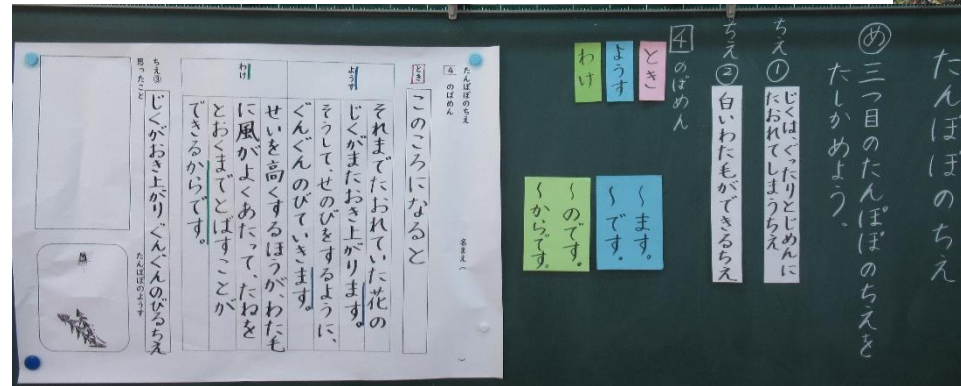 たんぽぽのちえ
め 三つ目のたんぽぽのちえを
たしかめよう。
ちえ①
じくは、ぐったりとじめんに
たおれてしまうちえ
ちえ②
白いわた毛ができるちえ
4 のばめん
とき
ようす
わけ
～ます。
～です。
～のです。
～からです。
たんぽぽのちえ
名まえ（　）
4 のばめん
とき
このころになると
ようす
それまでたおれていた花の
じくがまたおき上がります。
そうして、せのびをするように、
ぐんぐんのびていきます。
わけ
せいを高くするほうが、わた毛
に風がよくあたって、たねを
とおくまでとばすことが
できるからです。
ちえ③
じくがおき上がりぐんぐんのびるちえ
思ったこと
たんぽぽのようす